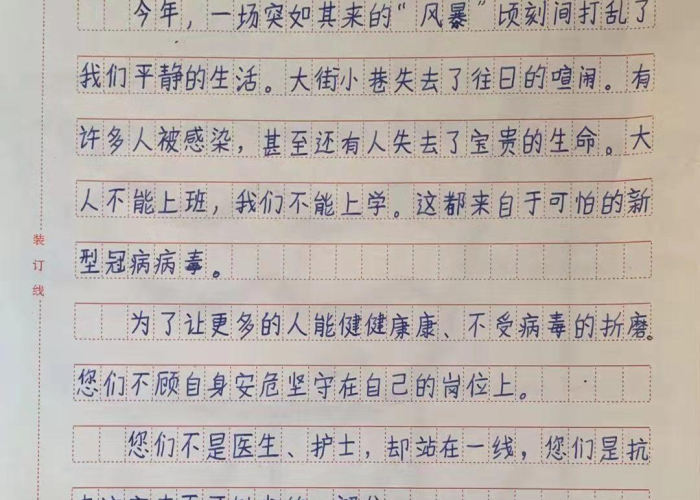 今年，一场突如其来的“风暴”顷刻间打乱了
我们平静的生活。大街小巷失去了往日的喧闹。有
许多人被感染，甚至还有人失去了宝贵的生命。大
人不能上班，我们不能上学。这都来自于可怕的新
型冠病病毒。
为了让更多的人能健健康康、不受病毒的折磨。
您们不顾自身安危坚守在自己的岗位上。
您们不是医生、护士，却站在一线，您们是抗
装订线